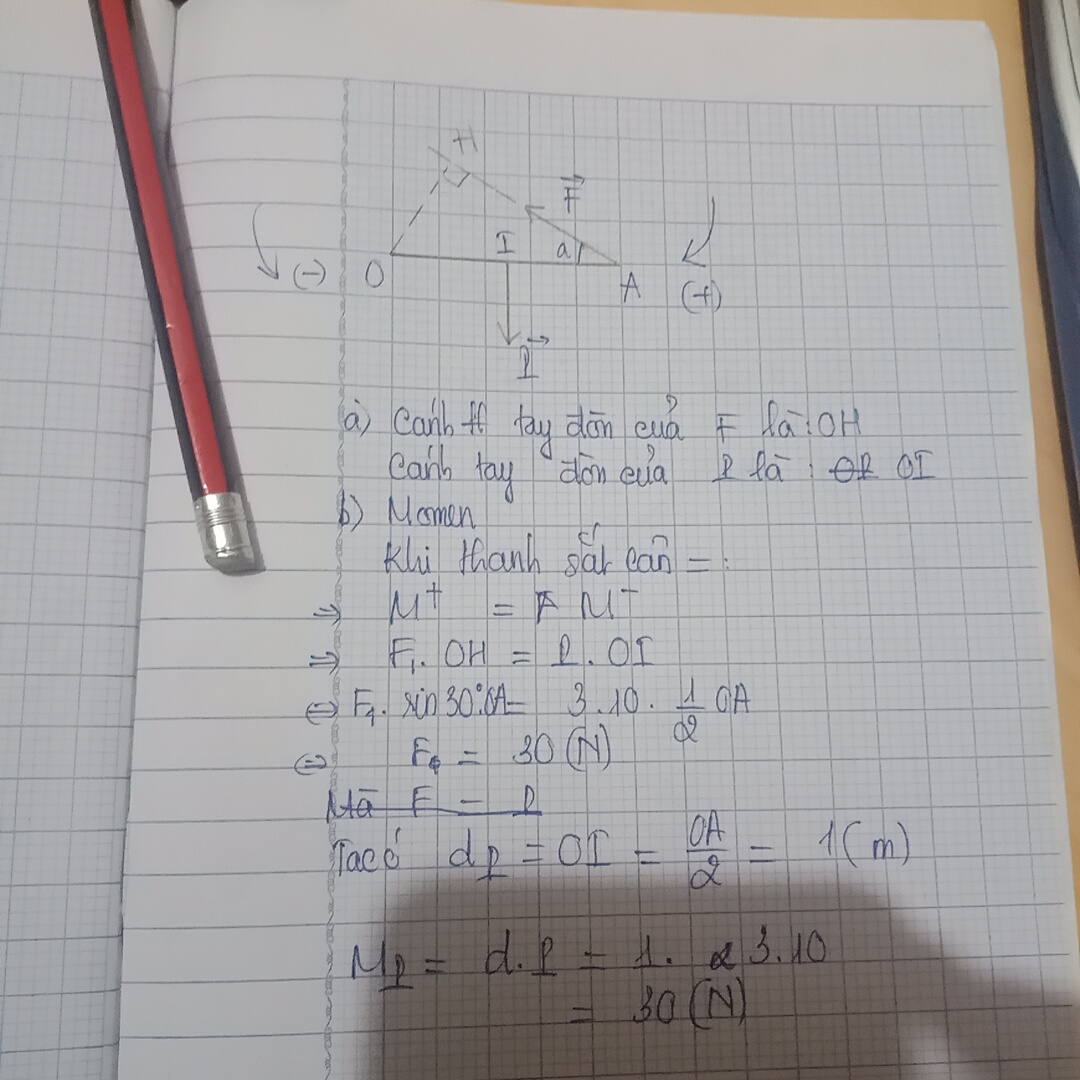 H
F
I
a
(-) O
A (+)
P
a) Cánh tay đòn của F là : OH
Cánh tay đòn của P là : OI
b) Momen
Khi thanh sắt cân = :
=> M⁺ = M⁻
=> F₁. OH = P. OI
<=> F₁. sin30°.OA = 3.10. 1/2 OA
<=> F = 30 (N)
Mà F = P
Ta có dP = OI = OA/2 = 1 (m)
MP = d.P = 1. 3.10
= 30 (N)